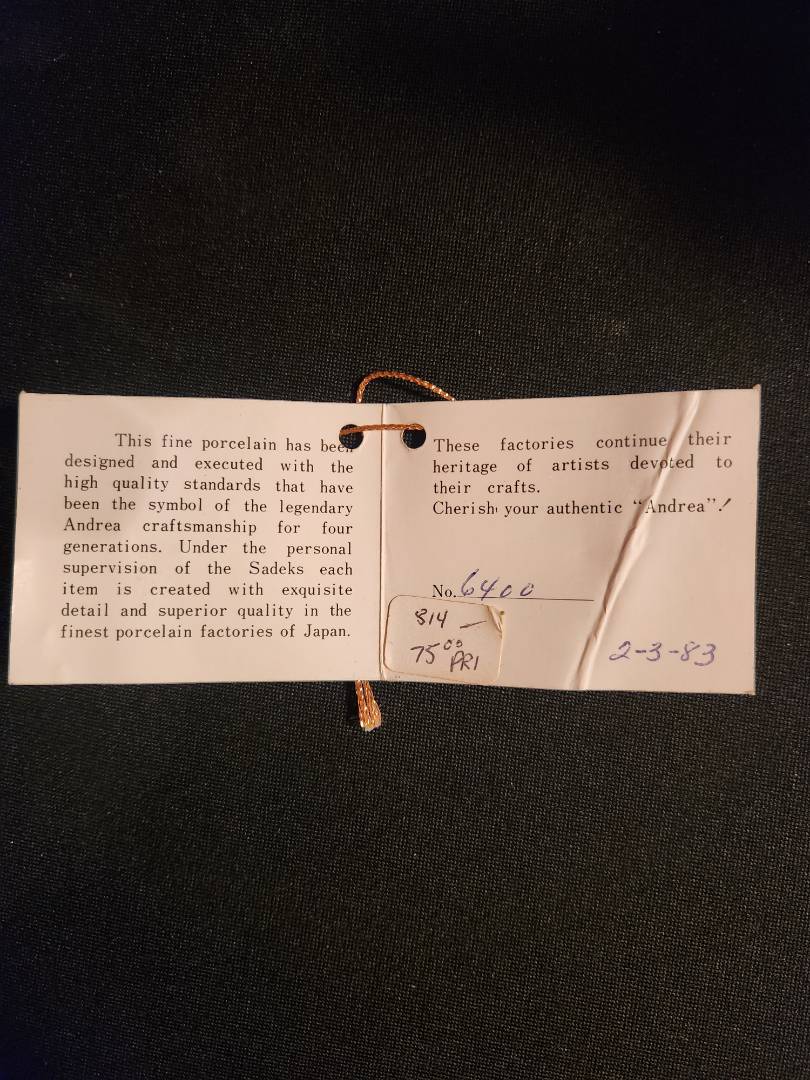 This fine porcelain has been
designed and executed with the
high quality standards that have
been the symbol of the legendary
Andrea craftsmanship for four
generations. Under the personal
supervision of the Sadeks each
item is created with exquisite
detail and superior quality in the
finest porcelain factories of Japan.
These factories continue their
heritage of artists devoted to
their crafts.
Cherish your authentic “Andrea”!
No. 6400
814 —
75 00 PRI
2-3-83